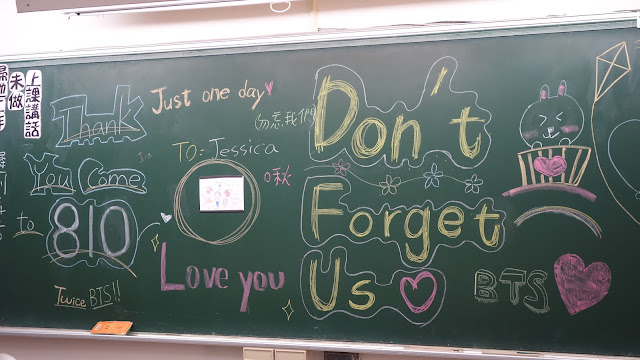 上課講話
未做
Thank
You Come
to
810
Twice BTS!!
Just one day
TO-Jessica
Love you
(勿忘我們)
Don't
Forget
Us
BTS